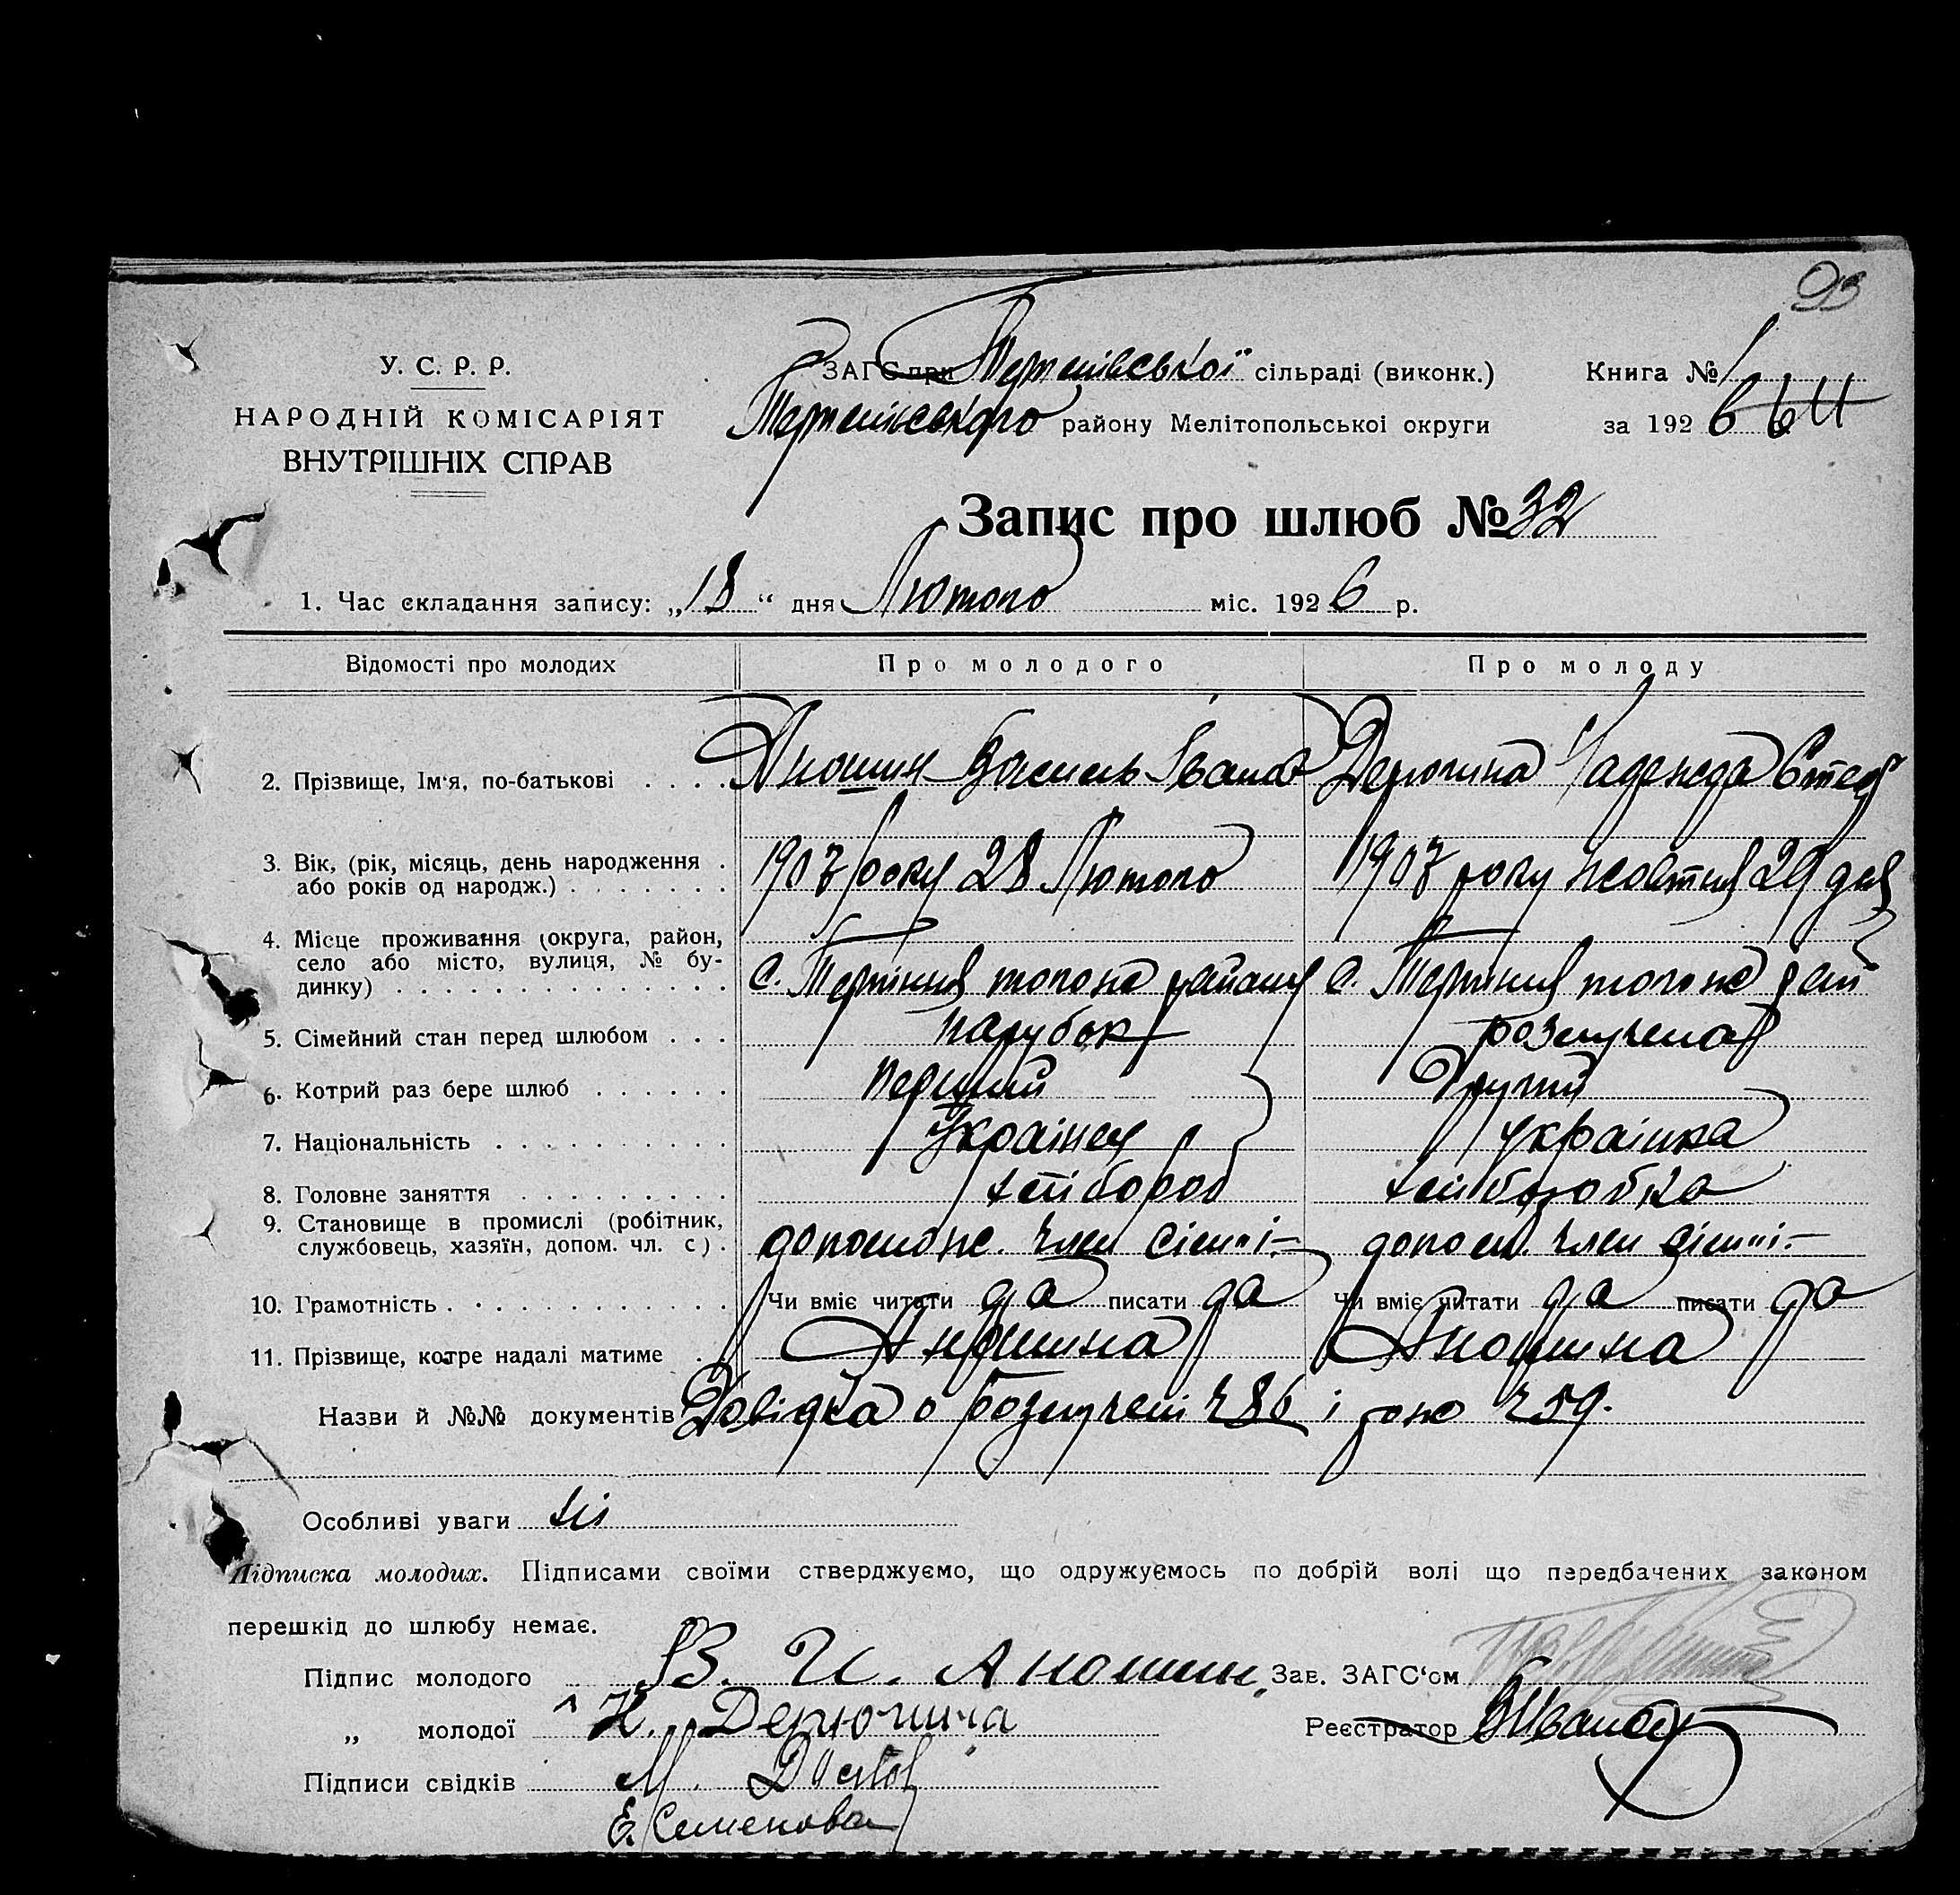 93
У. С. Р. Р.
НАРОДНІЙ КОМІСАРІЯТ
ВНУТРІШНІХ СПРАВ
ЗАГС при Терпеніївської сільраді (виконк.)
Терпеніївського району Мелітопольськоі округи
Книга № 1
за 1926
Запис про шлюб № 32
1. Час складання запису: „18“ дня Лютого міс. 1926 р.
Відомості про молодих
Про молодого
Про молоду
2. Прізвище, Ім‘я, по-батькові . . . . Аношин Василь Іванов Дерюгина Надежда
3. Вік, (рік, місяць, день народження .
або років од народж.) . . . . . . . 1907 року 28 Лютого 1907 року жовтня 29 дня
4. Місце проживання (округа, район,
село або місто, вулиця, № бу-
динку) . . . . . . . . . . . . . . с. Терпіння того ж району с. Терпіння того ж рай
5. Сімейний стан перед шлюбом . . . парубок розлучена
6. Котрий раз бере шлюб . . . . . . перший другий
7. Національність . . . . . . . . . . Українец українка
8. Головне заняття . . . . . . . . . хлібороб хліборобка
9. Становище в промислі (робітник,
службовець, хазяїн, допом. чл. с) . допомож. член сімʼі допом. член сімʼі
10. Грамотність . . . . . . . . . . . . Чи вміє читати да писати да Чи вміє читати да писати да
11. Прізвище, котре надалі матиме . . Аношина Аношина
Назви й №№ документів Довідка о розлучені і 259.
Особливі уваги ні
Підписка молодих. Підписами своїми стверджуємо, що одружуємось по добрій волі що передбачених законом
перешкід до шлюбу немає.
Підпис молодого В. И. Аношин. Зав. ЗАГС‘ом
„ молодої Н. Дерюгина Реєстратор
Підписи свідків М.
Е. Семенова